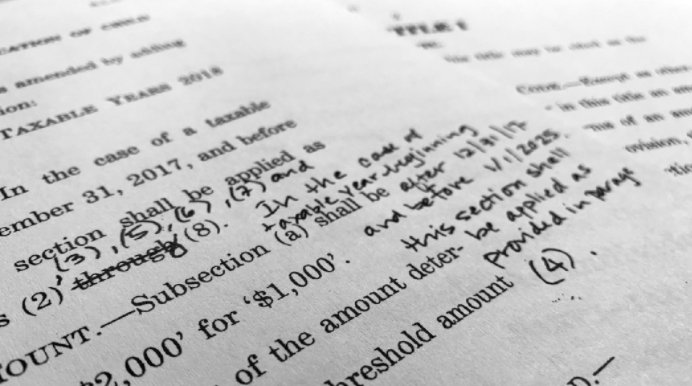 s amended by adding
ion:
TAXABLE YEARS 2018
In the case of a taxable
ember 31, 2017, and before
section shall be applied as
(3), (5), (6), (7) and
s (2) through (8).
OUNT.—Subsection (a) shall be
2,000’ for ‘$1,000’.
of the amount deter-
hreshold amount
In the case of
taxable year beginning
after 12/31/17
and before 1/1/2025
this section shall
be applied as
provided in parags
(4).
TITLE I
CODE.—Except as
in this title an
of an